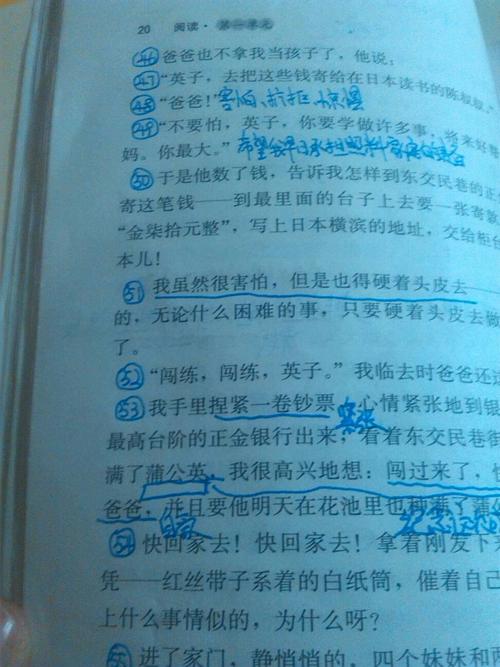 20 阅读·第一单元
㊻爸爸也不拿我当孩子了，他说：
㊼“英子，去把这些钱寄给在日本读书的陈叔叔。
㊽“爸爸！”害怕、抗拒、惊慌
㊾“不要怕，英子，你要学做许多事，将来好帮
妈。你最大。”希望
㊿于是他数了钱，告诉我怎样到东交民巷的正
寄这笔钱——到最里面的台子上去要一张寄款
“金柒拾元整”，写上日本横滨的地址，交给柜台
本儿！
51 我虽然很害怕，但是也得硬着头皮去——
的，无论什么困难的事，只要硬着头皮去做
了。
52 “闯练，闯练，英子。”我临去时爸爸还
53 我手里捏紧一卷钞票，心情紧张地到银
紧张
最高台阶的正金银行出来，看着东交民巷街
满了蒲公英，我很高兴地想：闯过来了，快
爸爸，并且要他明天在花池里也种满了蒲公
54 快回家去！快回家去！拿着刚发下来
凭——红丝带子系着的白纸筒，催着自己
上什么事情似的，为什么呀？
55 进了家门，静悄悄的，四个妹妹和两